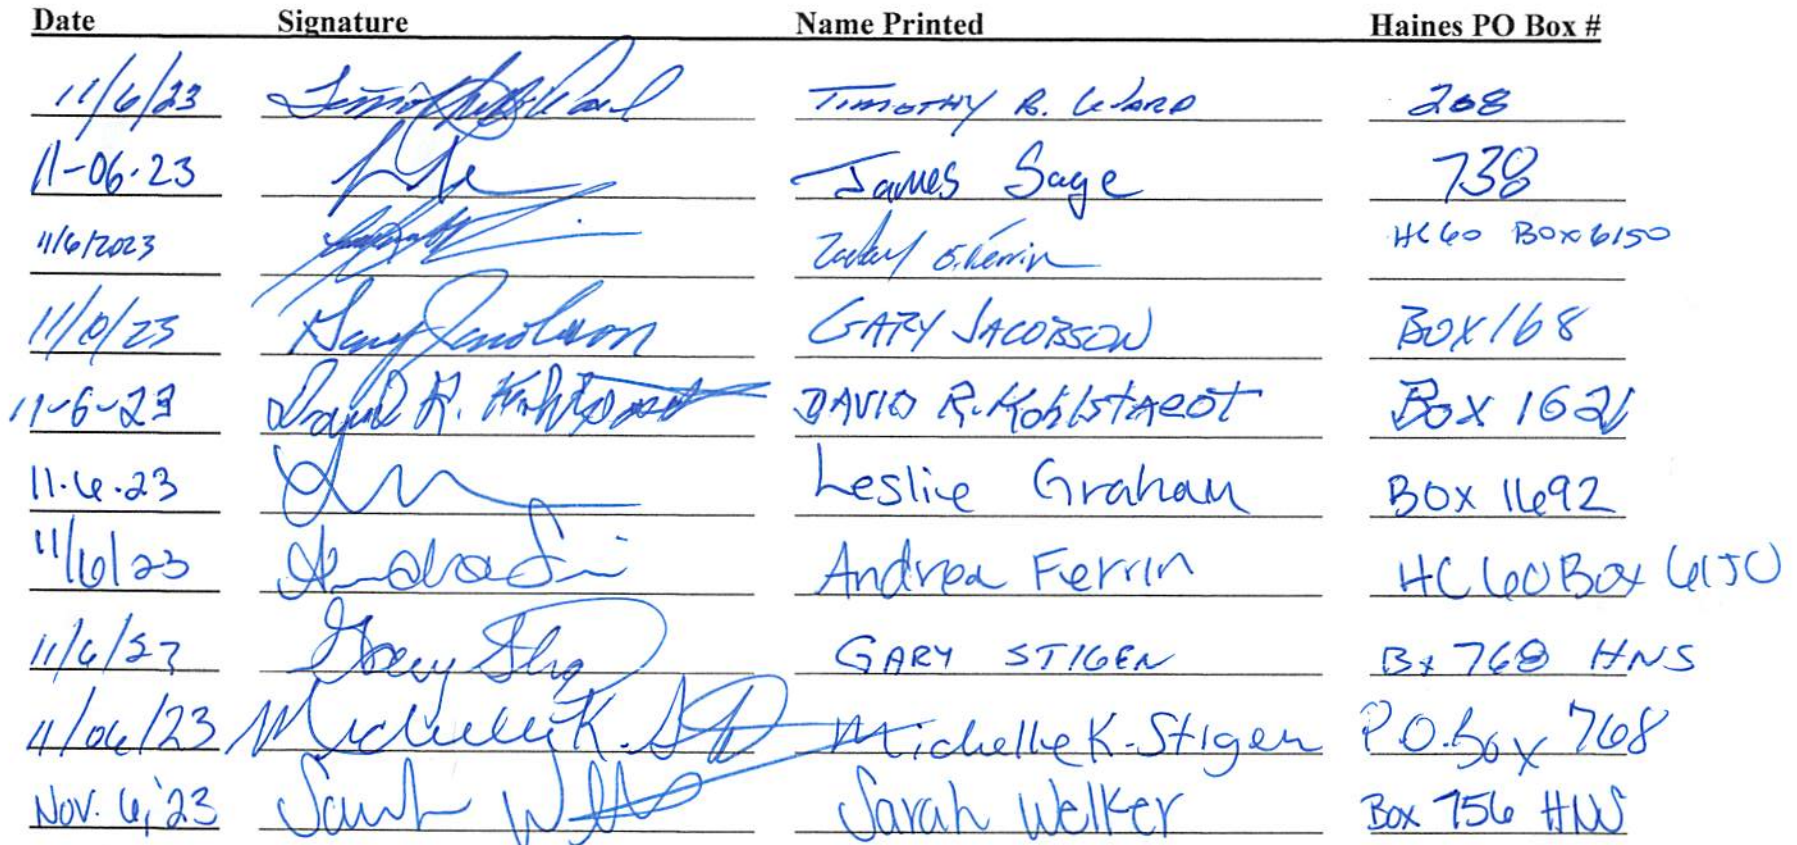 Date Signature Name Printed Haines PO Box #
11/6/23 TIMOTHY B. WARD 208
11-06-23 James Sage 738
11/6/2023 Ferrin HC 60 BOX 6150
23 Gary Jacobson GARY JACOBSON BOX 168
11-6-23 David R. DAVID R. Box 1621
11.6.23 Leslie Graham BOX 1692
11/6/23 Andrea Ferrin HC 60 Box 6150
11/6/23 Gary GARY STIGEN Bx 768 HNS
11/06/23 Michelle K. Michelle K. Stigen P.O. Box 768
Nov. 6, 23 Sarah Sarah Welker Box 756 HNS